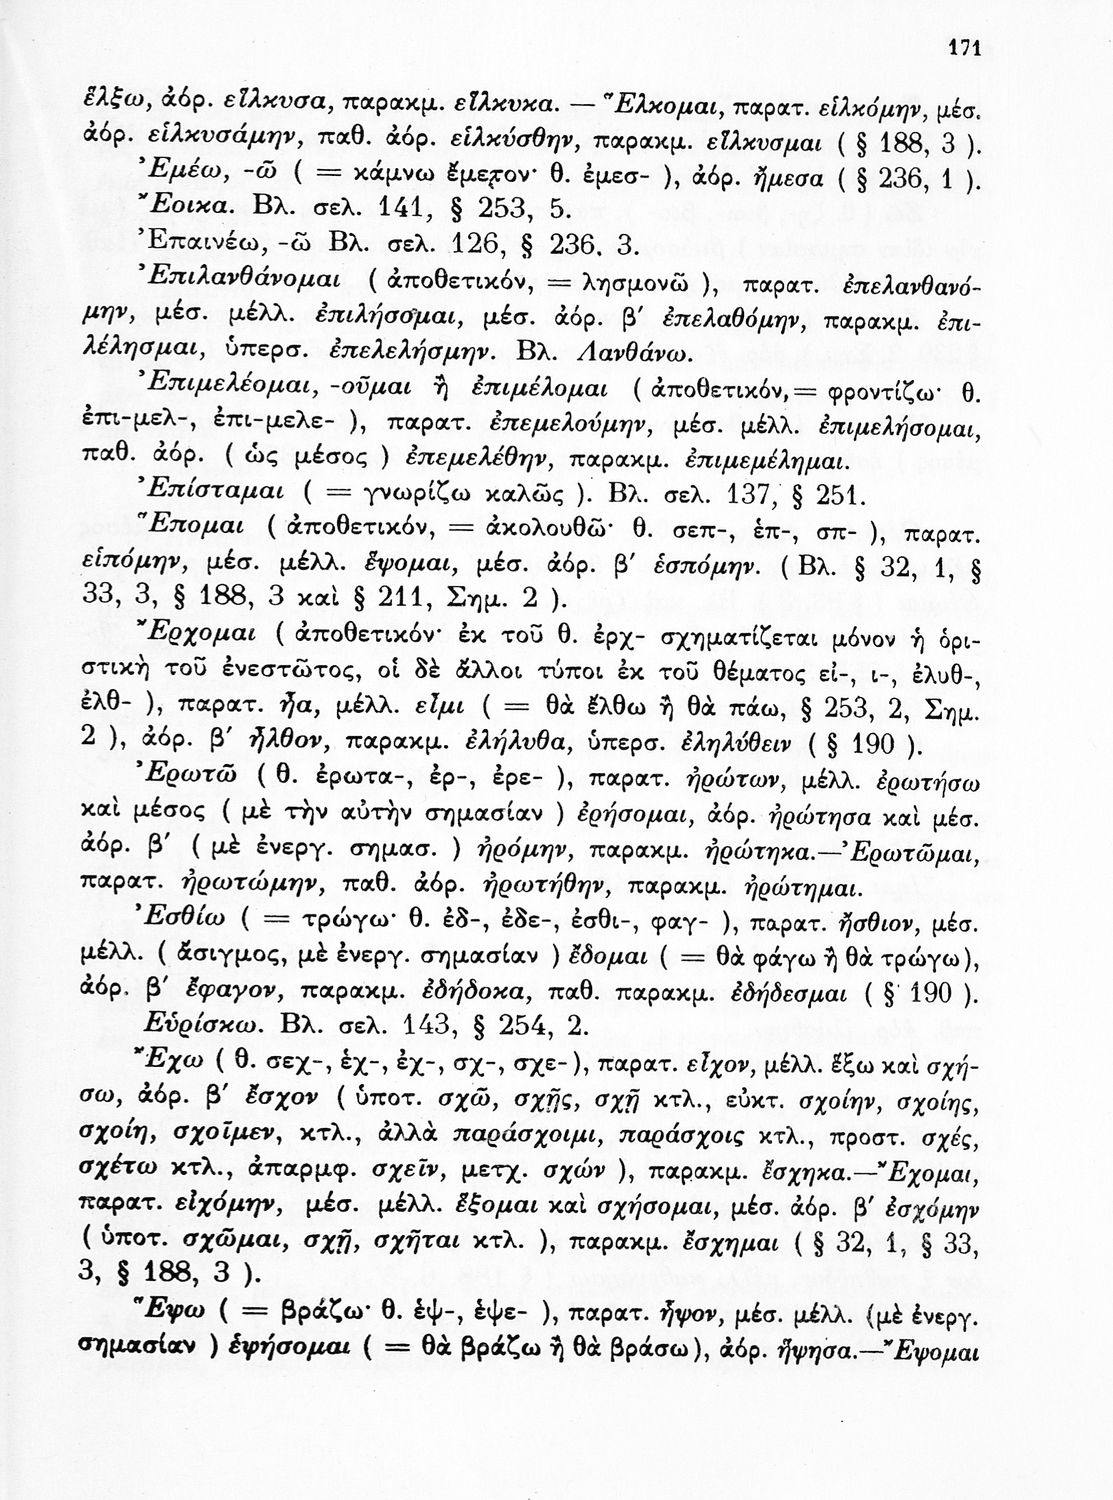 171
ἕλξω, ἀόρ. εἵλκυσα, παρακμ. εἵλκυκα. — Ἕλκομαι, παρατ. εἱλκόμην, μέσ.
ἀόρ. εἱλκυσάμην, παθ. ἀόρ. εἱλκύσθην, παρακμ. εἵλκυσμαι ( § 188, 3 ).
Ἐμέω, -ῶ ( = κάμνω ἔμετον· θ. ἐμεσ- ), ἀόρ. ἤμεσα ( § 236, 1 ).
Ἔοικα. Βλ. σελ. 141, § 253, 5.
Ἐπαινέω, -ῶ Βλ. σελ. 126, § 236. 3.
Ἐπιλανθάνομαι ( ἀποθετικόν, = λησμονῶ ), παρατ. ἐπελανθανό-
μην, μέσ. μέλλ. ἐπιλήσομαι, μέσ. ἀόρ. β′ ἐπελαθόμην, παρακμ. ἐπι-
λέλησμαι, ὑπερσ. ἐπελελήσμην. Βλ. Λανθάνω.
Ἐπιμελέομαι, -οῦμαι ἢ ἐπιμέλομαι ( ἀποθετικόν, = φροντίζω· θ.
ἐπι-μελ-, ἐπι-μελε- ), παρατ. ἐπεμελούμην, μέσ. μέλλ. ἐπιμελήσομαι,
παθ. ἀόρ. ( ὡς μέσος ) ἐπεμελέθην, παρακμ. ἐπιμεμέλημαι.
Ἐπίσταμαι ( = γνωρίζω καλῶς ). Βλ. σελ. 137, § 251.
Ἕπομαι ( ἀποθετικόν, = ἀκολουθῶ· θ. σεπ-, ἑπ-, σπ- ), παρατ.
εἱπόμην, μέσ. μέλλ. ἕψομαι, μέσ. ἀόρ. β′ ἑσπόμην. ( Βλ. § 32, 1, §
33, 3, § 188, 3 καὶ § 211, Σημ. 2 ).
Ἔρχομαι ( ἀποθετικόν· ἐκ τοῦ θ. ἐρχ- σχηματίζεται μόνον ἡ ὁρι-
στικὴ τοῦ ἐνεστῶτος, οἱ δὲ ἄλλοι τύποι ἐκ τοῦ θέματος εἰ-, ι-, ἐλυθ-,
ἐλθ- ), παρατ. ᾖα, μέλλ. εἶμι ( = θὰ ἔλθω ἢ θὰ πάω, § 253, 2, Σημ.
2 ), ἀόρ. β′ ἦλθον, παρακμ. ἐλήλυθα, ὑπερσ. ἐληλύθειν ( § 190 ).
Ἐρωτῶ ( θ. ἐρωτα-, ἐρ-, ἐρε- ), παρατ. ἠρώτων, μέλλ. ἐρωτήσω
καὶ μέσος ( μὲ τὴν αὐτὴν σημασίαν ) ἐρήσομαι, ἀόρ. ἠρώτησα καὶ μέσ.
ἀόρ. β′ ( μὲ ἐνεργ. σημασ. ) ἠρόμην, παρακμ. ἠρώτηκα.—Ἐρωτῶμαι,
παρατ. ἠρωτώμην, παθ. ἀόρ. ἠρωτήθην, παρακμ. ἠρώτημαι.
Ἐσθίω ( = τρώγω· θ. ἐδ-, ἐδε-, ἐσθι-, φαγ- ), παρατ. ἤσθιον, μέσ.
μέλλ. ( ἄσιγμος, μὲ ἐνεργ. σημασίαν ) ἔδομαι ( = θὰ φάγω ἢ θὰ τρώγω),
ἀόρ. β′ ἔφαγον, παρακμ. ἐδήδοκα, παθ. παρακμ. ἐδήδεσμαι ( § 190 ).
Εὑρίσκω. Βλ. σελ. 143, § 254, 2.
Ἔχω ( θ. σεχ-, ἑχ-, ἐχ-, σχ-, σχε- ), παρατ. εἶχον, μέλλ. ἕξω καὶ σχή-
σω, ἀόρ. β′ ἔσχον ( ὑποτ. σχῶ, σχῇς, σχῇ κτλ., εὐκτ. σχοίην, σχοίης,
σχοίη, σχοῖμεν, κτλ., ἀλλὰ παράσχοιμι, παράσχοις κτλ., προστ. σχές,
σχέτω κτλ., ἀπαρμφ. σχεῖν, μετχ. σχών ), παρακμ. ἔσχηκα.—Ἔχομαι,
παρατ. εἰχόμην, μέσ. μέλλ. ἕξομαι καὶ σχήσομαι, μέσ. ἀόρ. β′ ἐσχόμην
( ὑποτ. σχῶμαι, σχῇ, σχῆται κτλ. ), παρακμ. ἔσχημαι ( § 32, 1, § 33,
3, § 188, 3 ).
Ἕψω ( = βράζω· θ. ἑψ-, ἑψε- ), παρατ. ἧψον, μέσ. μέλλ. (μὲ ἐνεργ.
σημασίαν ) ἑψήσομαι ( = θὰ βράζω ἢ θὰ βράσω), ἀόρ. ἥψησα.—Ἕψομαι